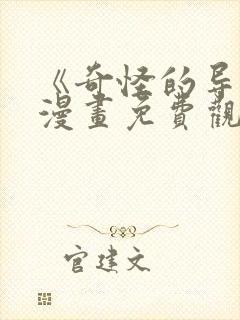 《奇怪的导
漫畫免費觀
官建文